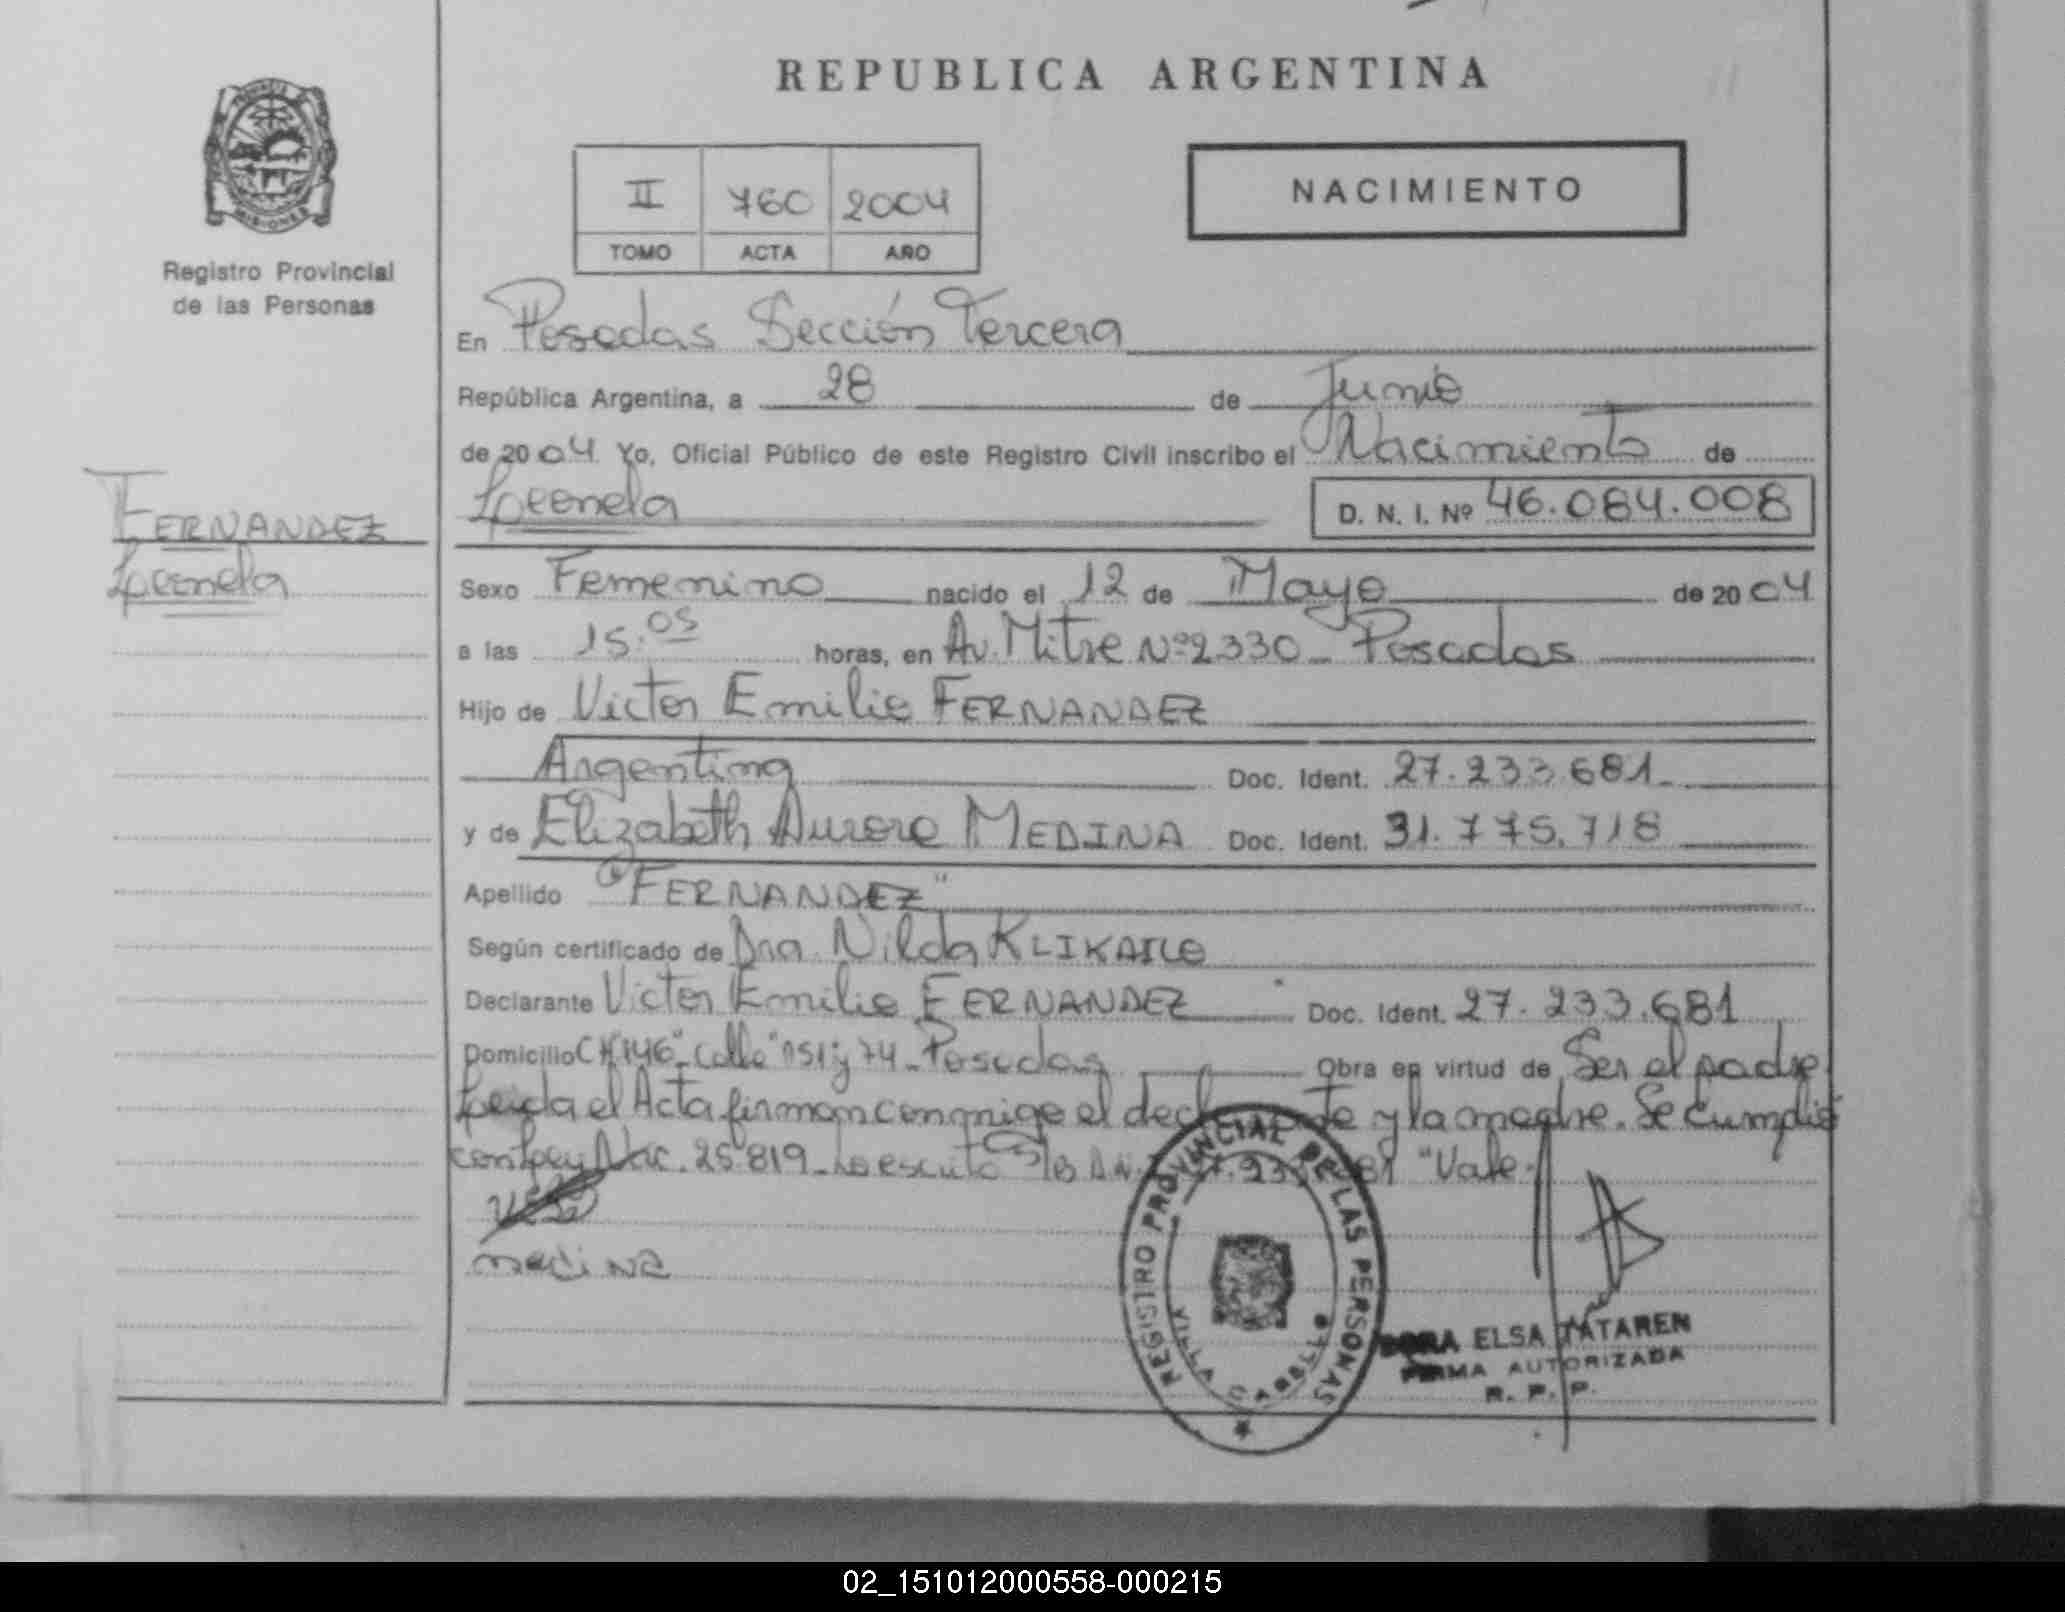 REPUBLICA ARGENTINA
NACIMIENTO
II 760 2004
TOMO ACTA AÑO
MISIONES
Registro Provincial
de las Personas
FERNANDEZ
En Posadas Sección Tercera
República Argentina, a 28 de Junio
de 2004 Yo, Oficial Público de este Registro Civil inscribo el Nacimiento de
D. N. I. Nº 46.084.008
Sexo Femenino nacido el 12 de Mayo de 2004
a las 15:05 horas, en Av. Mitre Nº 2330 Posadas
Hijo de Victor Emilio FERNANDEZ
Argentina Doc. Ident. 27.233.681
y de Elizabeth Aurora MEDINA Doc. Ident. 31.775.718
Apellido "FERNANDEZ"
Según certificado de Dra. Nilda
Declarante Victor Emilio FERNANDEZ Doc. Ident. 27.233.681
Domicilio CH 146 - Calle 151 y 74 - Posadas Obra en virtud de Ser el padre
Leida el Acta firman conmigo el declarante y la madre. Se Cumplió
con Ley Nac. 25.819 "Vale"
medina
REGISTRO PROVINCIAL DE LAS PERSONAS
VILLA CABELLO
DORA ELSA TATAREN
FIRMA AUTORIZADA
R. P. P.
02_151012000558-000215